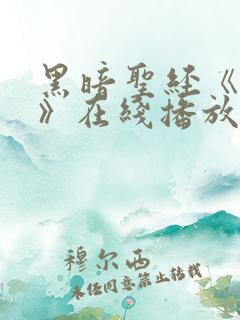 黑暗聖经《
》在綫播放
穆尔西
未经同意禁止转载